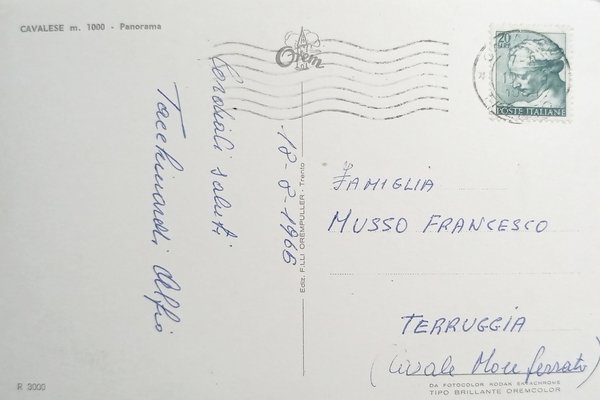 CAVALESE m. 1000 - Panorama
Orem
20
POSTE ITALIANE
Cordiali saluti
Tacchinardi Alfio
18-8-1966
Ediz. F.LLI OREMPULLER - Trento
FAMIGLIA
MUSSO FRANCESCO
TERRUGGIA
(Casale Monferrato)
R 3000
DA FOTOCOLOR KODAK EKTACHROME
TIPO BRILLANTE OREMCOLOR